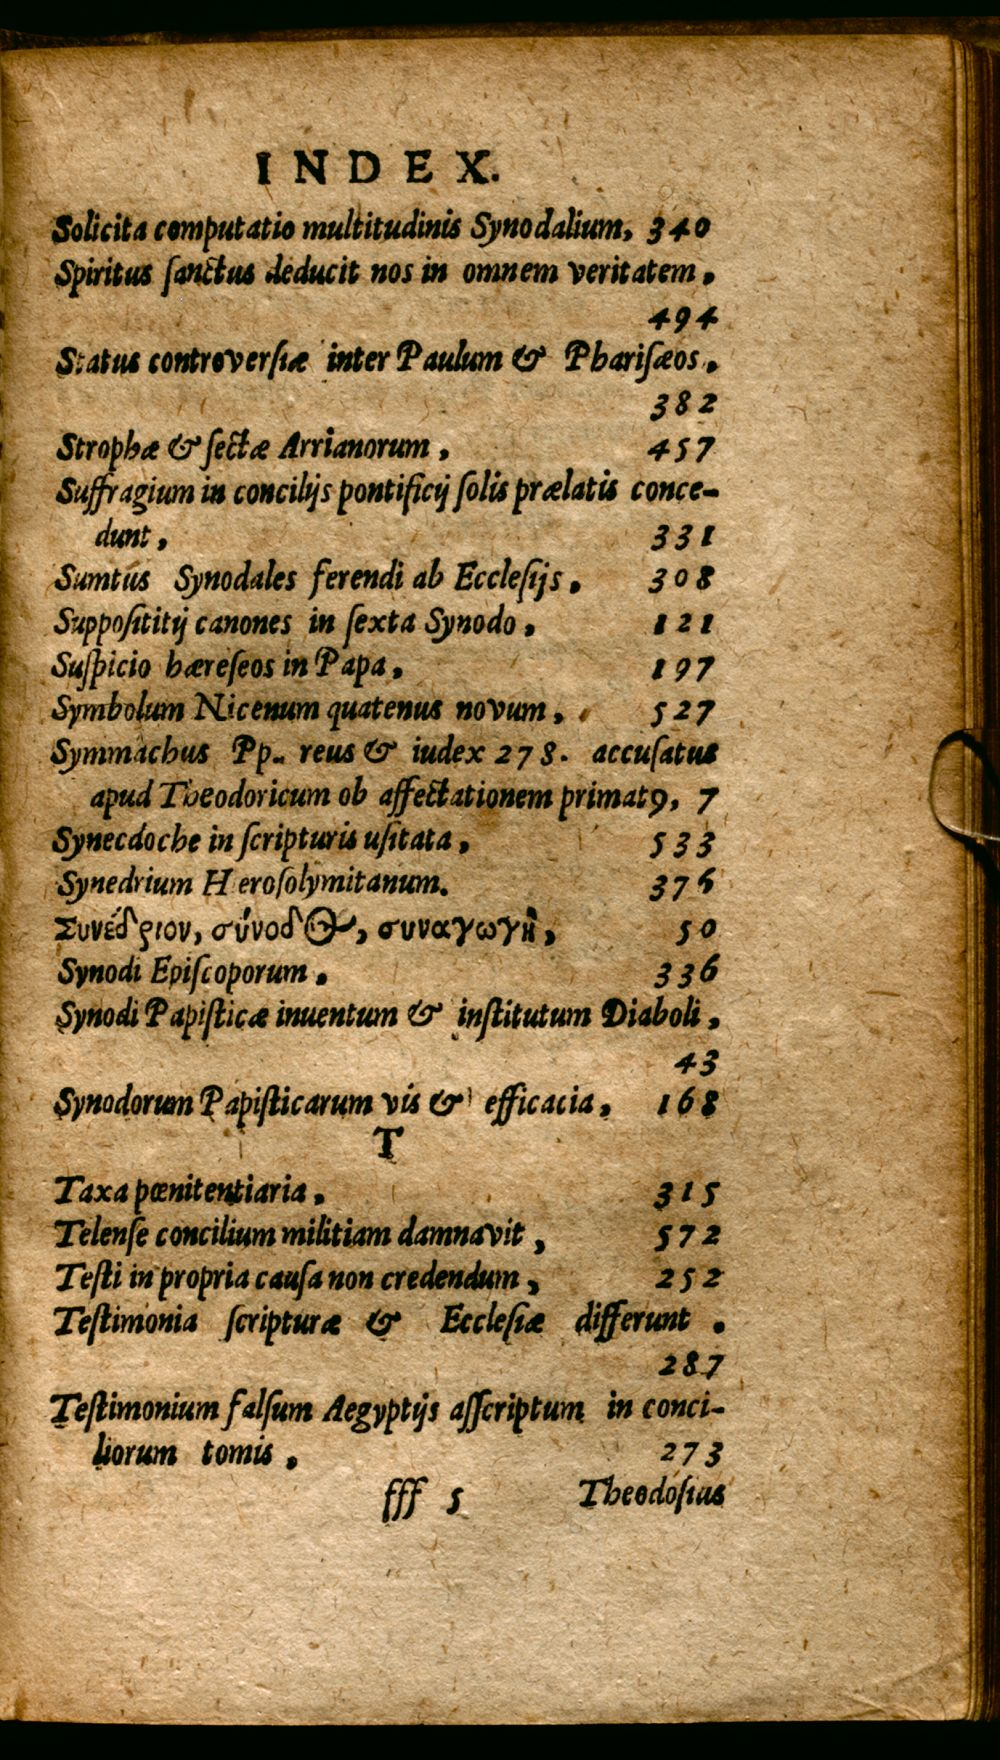 INDEX.
Solicita computatio multitudinis Synodalium, 340
Spiritus ſanctus deducit nos in omnem veritatem.
494
Status controverſiæ inter Paulum & Phariſæos.
382
Strophæ & ſectæ Arrianorum, 457
Suffragium in concilijs pontificij ſolis prælatis conce-
dunt, 331
Sumtus Synodales ferendi ab Eccleſijs. 308
Suppoſititij canones in ſexta Synodo, 121
Suſpicio hæreſeos in Papa, 197
Symbolum Nicenum quatenus novum, 527
Symmachus Pp. reus & iudex 278. accuſatus
apud Theodoricum ob affectationem primatꝰ, 7
Synecdoche in ſcripturis uſitata, 533
Synedrium Hieroſolymitanum. 376
Συνέδριον, σύνοδος, συναγωγὴ, 50
Synodi Epiſcoporum. 336
Synodi Papiſticæ inuentum & inſtitutum Diaboli,
43
Synodorum Papiſticarum vis & efficacia, 168
T
Taxa pœnitentiaria, 315
Telenſe concilium militiam damnavit, 572
Teſti in propria cauſa non credendum, 252
Teſtimonia ſcripturæ & Eccleſiæ differunt.
287
Teſtimonium falſum Aegyptijs aſſcriptum in conci-
liorum tomis. 273
fff 5 Theodoſius